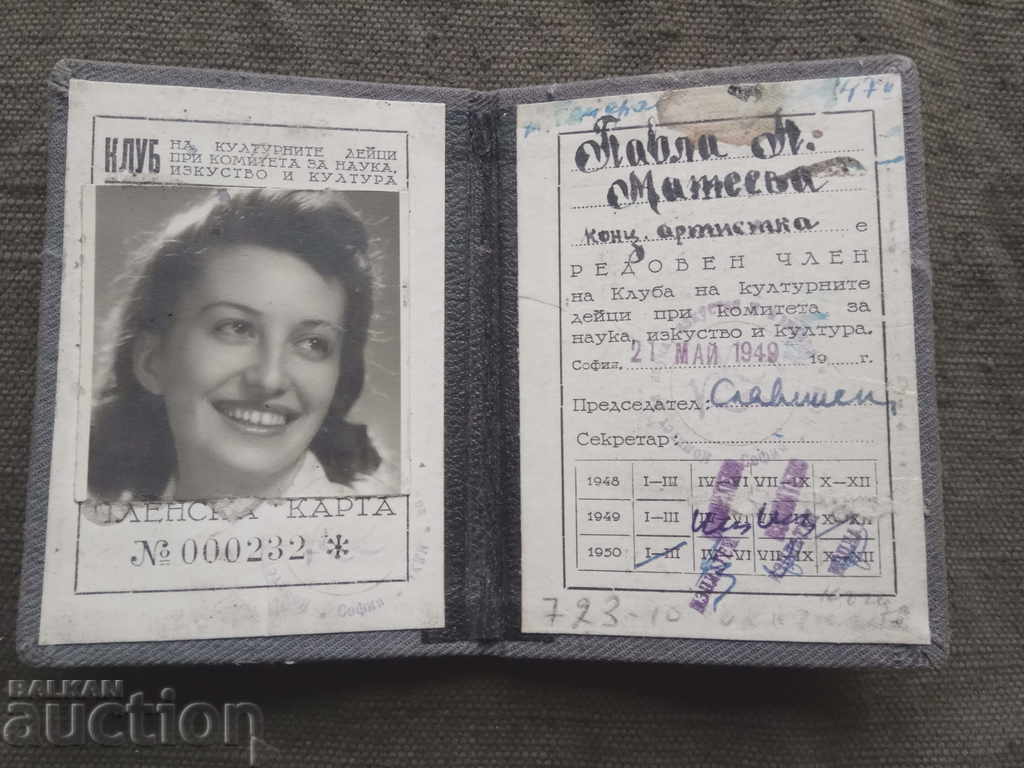 КЛУБ НА КУЛТУРНИТЕ ДЕЙЦИ
ПРИ КОМИТЕТА ЗА НАУКА,
ИЗКУСТВО И КУЛТУРА
ЧЛЕНСКА КАРТА
№ 000232 *
София
Павла М.
Матеева
конц. артистка е
РЕДОВЕН ЧЛЕН
на Клуба на културните
дейци при комитета за
наука, изкуство и култура.
София, 21 МАЙ 1949 19 г.
Председател:
Секретар:
1948 I—III IV—VI VII—IX X—XII
1949 I—III IV—VI VII—IX X—XII
1950 I—III IV—VI VII—IX X—XII
723-10
BALKAN
auction